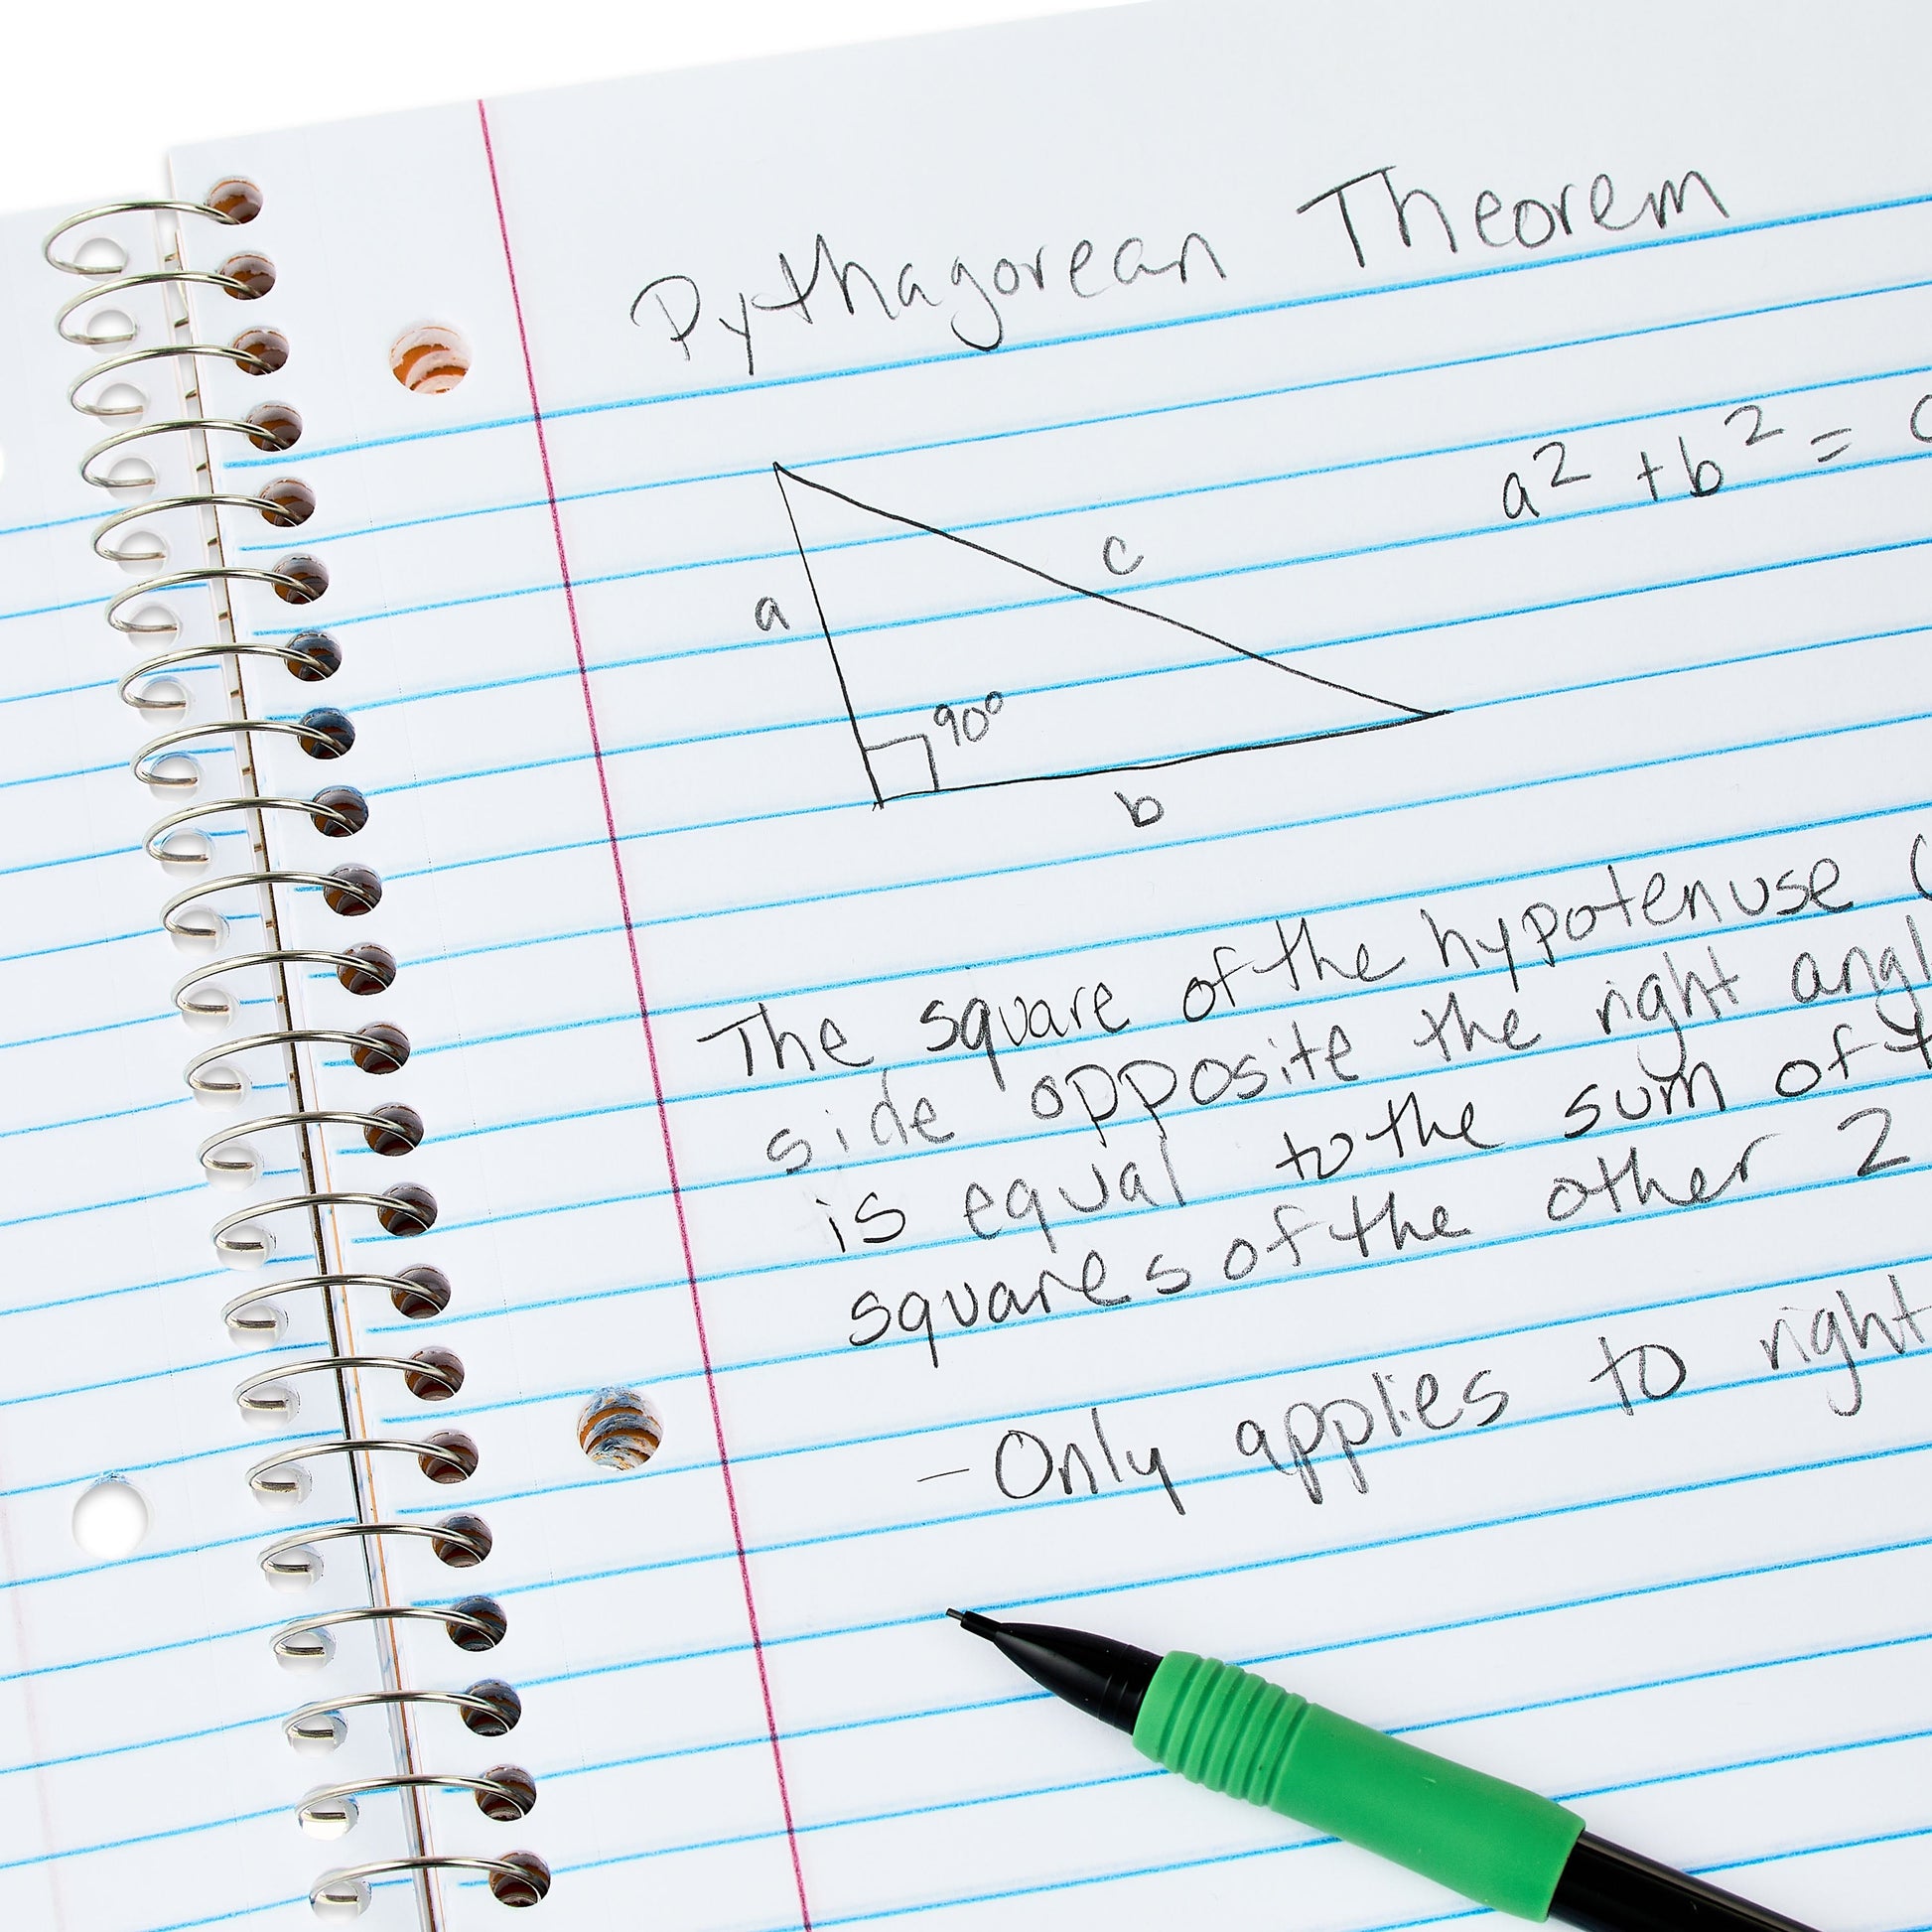 Pythagorean Theorem
a² + b² =
c
a
90°
b
The square of the hypotenuse (
side opposite the right
is equal to the sum of
squares of the other 2
- Only applies to right